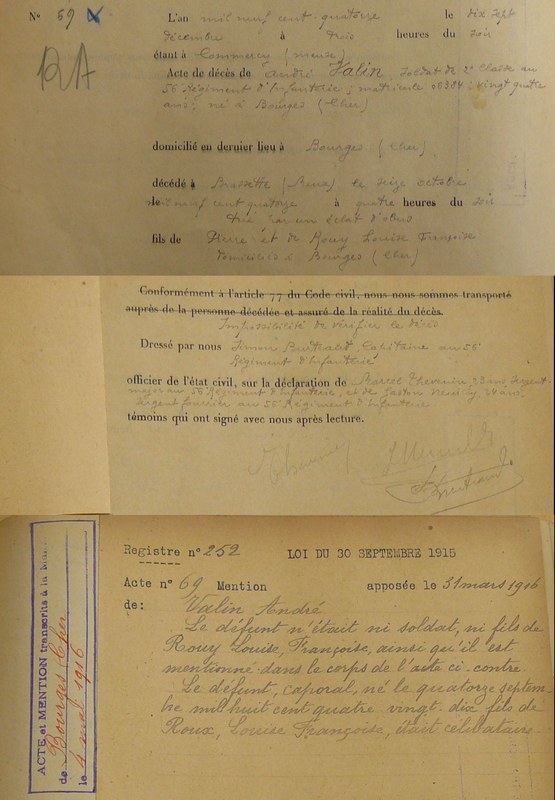 N° 69 L'an mil neuf cent quatorze le dix sept
décembre à trois heures du soir
étant à Commercy (meuse)
RA
Acte de décès de André Valin, soldat de 2e classe au
56 Régiment d'Infanterie ; matricule 05384 ; vingt quatre
ans ; né à Bourges (Cher)
domicilié en dernier lieu à Bourges (Cher)
décédé à Brassette (Meuse) le seize octobre
le mil neuf cent quatorze à quatre heures du soir
tué par un éclat d'obus
fils de Pierre et de Rouy Louise Françoise
domiciliés à Bourges (Cher)
Conformément à l'article 77 du Code civil, nous nous sommes transporté
auprès de la personne décédée et assuré de la réalité du décès.
Impossibilité de vérifier le décès
Dressé par nous Simon Bertrand, Capitaine au 56
Régiment d'Infanterie
officier de l'état civil, sur la déclaration de Marcel Thevenin 23 ans, Sergent
major au 56 Régiment d'Infanterie, et de Gaston 24 ans,
Sergent fourrier au 56 Régiment d'Infanterie
témoins qui ont signé avec nous après lecture.
Registre n° 252 LOI DU 30 SEPTEMBRE 1915
Acte n° 69 Mention apposée le 31 mars 1916
de: Valin André
Le défunt n'était ni soldat, ni fils de
Rouy Louise, Françoise, ainsi qu'il est
mentionné dans le corps de l'acte ci-contre.
Le défunt, caporal, né le quatorze septem-
bre mil huit cent quatre vingt dix fils de
Roux, Louise Françoise, était célibataire.
ACTE et MENTION transcrits à la
de Bourges Cher
le 4 mai 1916